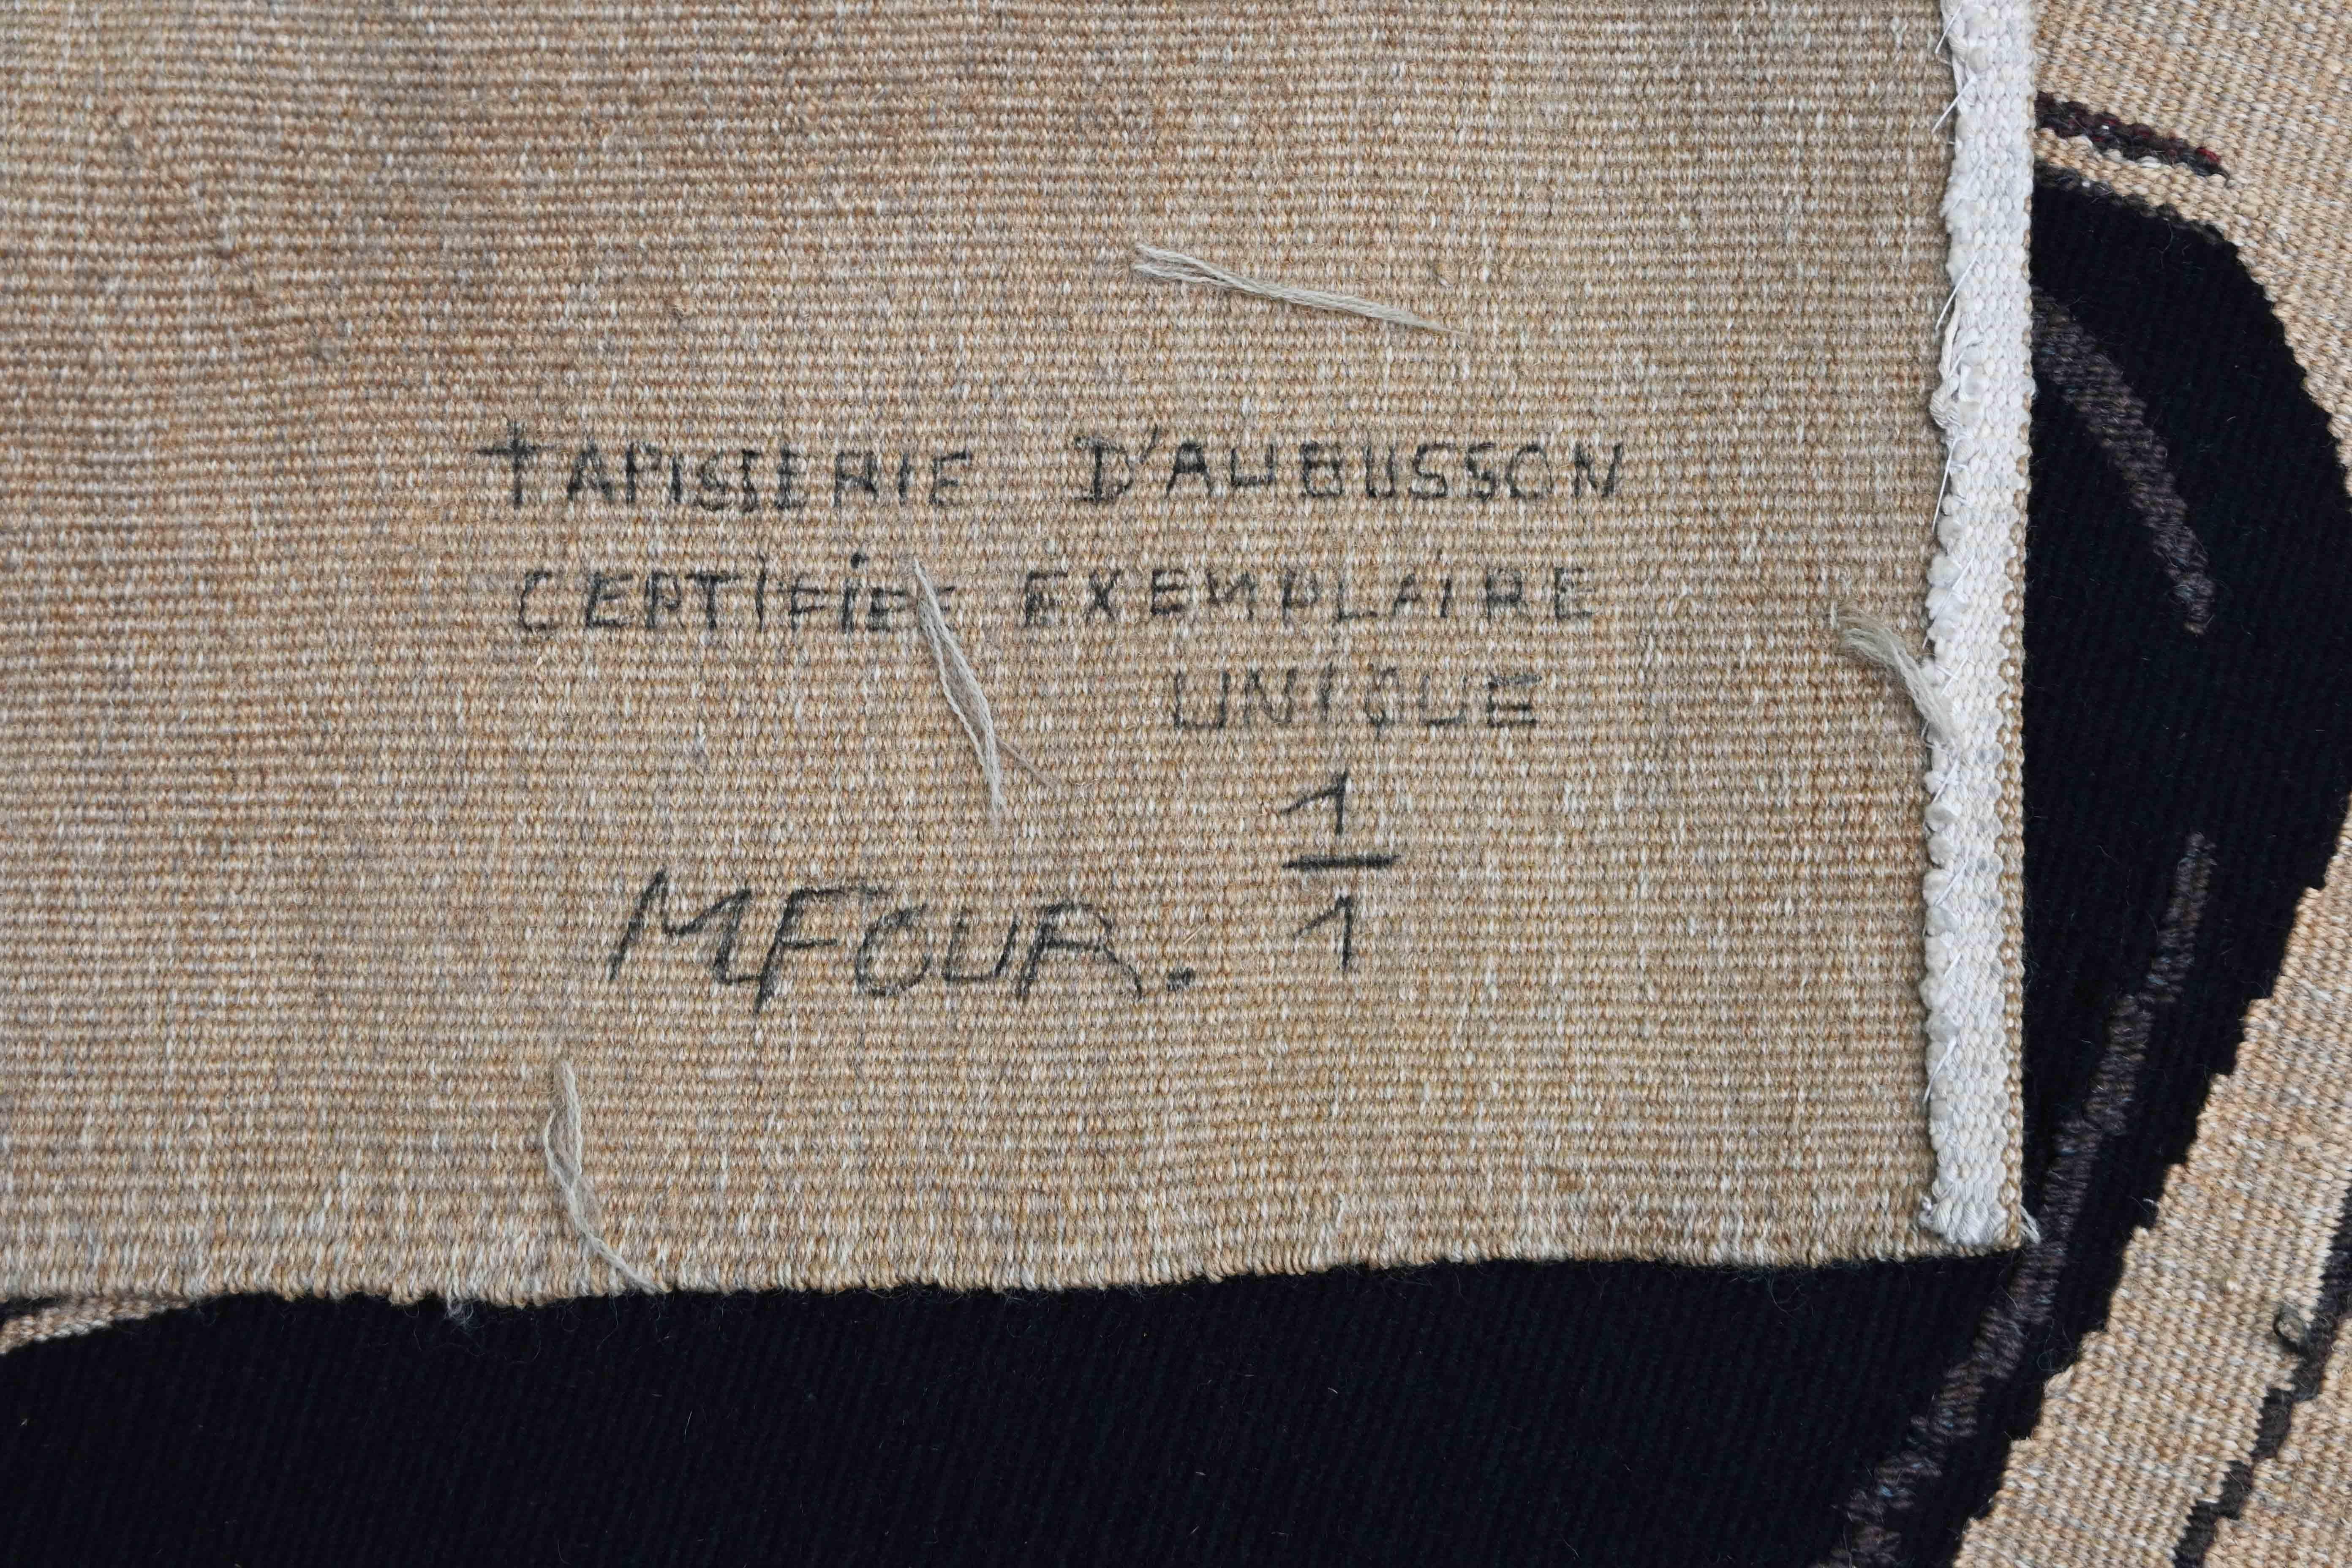 TAPISSERIE D'AUBUSSON
CERTIFIÉE EXEMPLAIRE
UNIQUE
1
1
MFOUR.